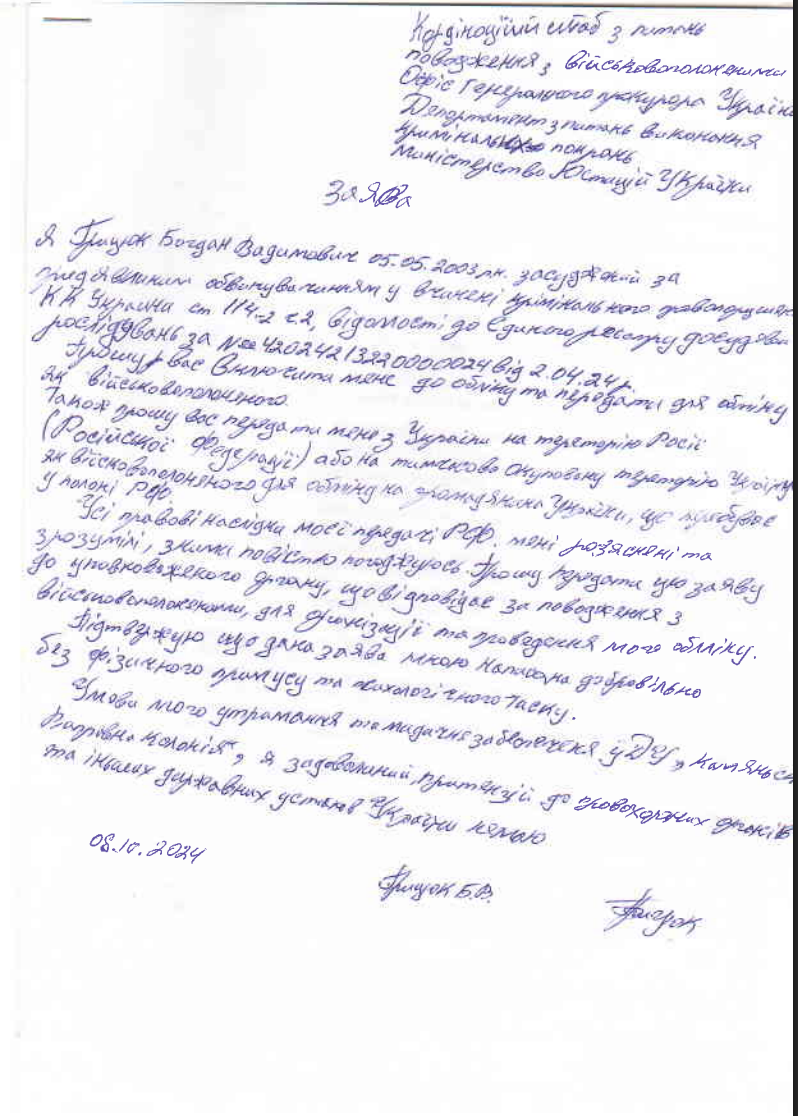 Кордіноційий штаб з питань
поводження з військовополоненими
Офіс Генерального прокурора Україн
Департамент з питань виконання
кримінальних покрань
Міністерство Юстицій України
Заява
Я Грицюк Богдан Вадимович 05.05.2003 рн. засуджений за
предявленим обвинуваченням у вчинені кримінального правопорушен
КК Украина ст 114-2 ч.2, відомості до Єдиного реєстру досудови
розслідувань за № 42024213220000024 від 2.04.24 р.
Прошу вас включити мене до обліку та передати для обліку
як військовополоненого.
Також прошу вас передати мене з України на територію Росії
(Російської Федерації) або на тимчасово окуповану територію Україну
як війсковополоняного для обміну на громадянина України, що прибуває
у полоні РФ.
Усі правові наслідки моєї передачі РФ. мені роз'яснені та
зрозумілі, з ними повістю погоджуюсь. Прошу передати цю заяву
до уповноваженого органу, що відповідає за поводження з
військовополоненими, для організації та проведення мого обліку.
Підтверджую що дана заява мною написана добровільно
без фізичного примусу та психологічного тиску.
Умови мого утримання та медичне забезпечення у ДУ „Кам'янськ
Виправна колонія", я задоволений, притензій до правохоронних органів
та інших державних установ України немаю
08.10.2024
Грицюк Б.В.
Грицюк